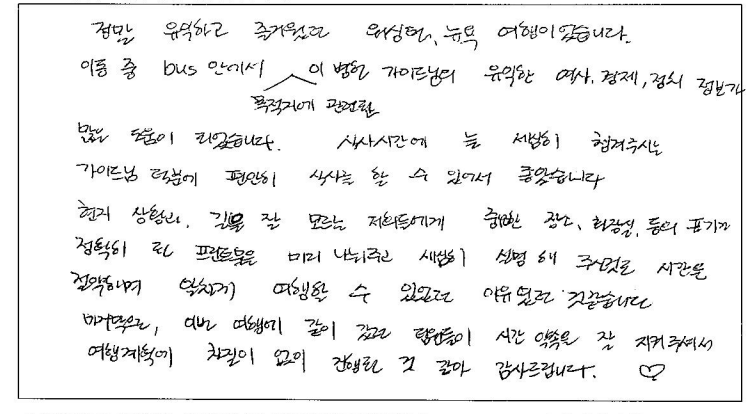 정말 유익하고 즐거웠던 워싱턴, 뉴욕 여행이었습니다.
이동 중 bus 안에서 이 병헌 가이드님의 유익한 역사, 경제, 정치 정보가
목적지에 관련된
많은 도움이 되었습니다. 식사시간에 늘 세심히 챙겨주시는
가이드님 덕분에 편안히 식사를 할 수 있어서 좋았습니다
현지 상황과, 길을 잘 모르는 저희들에게 중요한 장소, 화장실, 등의 표기가
정확히 된 프린트물을 미리 나눠주고 세심히 설명 해 주신것도 시간을
절약하며 알차게 여행할 수 있었던 이유였던 것같습니다
마지막으로, 이번 여행에 같이 갔던 팀원들이 시간 약속을 잘 지켜주셔서
여행계획에 차질이 없이 진행된 것 같아 감사드립니다. ♡